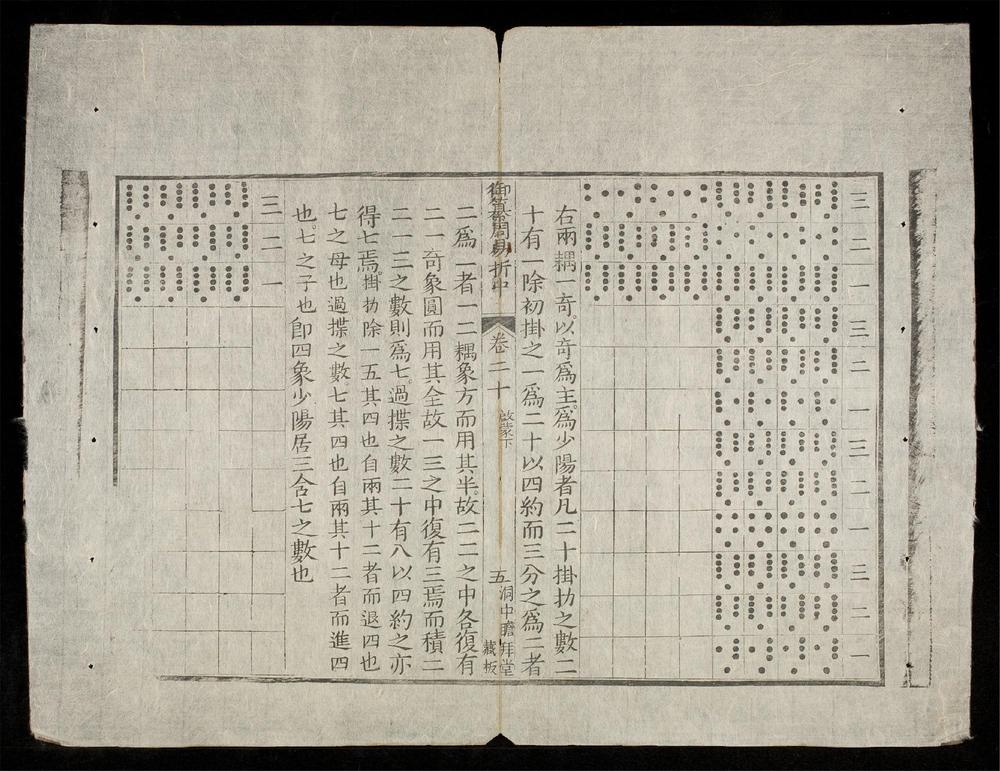 三 二 一 三 二 一 三 二 一 三 二 一
右兩耦一奇。以奇爲主。爲少陽者凡二十掛扐之數二
十有一除初掛之一爲二十以四約而三分之爲二者
御纂周易折中 卷二十 啟蒙下 五 洞中瞻拜堂藏板
二爲一者一二耦象方而用其半。故二二之中各復有
二一奇象圓而用其全故一三之中復有三焉而積二
二一三之數則爲七。過揲之數二十有八以四約之亦
得七焉。掛扐除一五其四也自兩其十二者而退四也
七之母也過揲之數。七其四也自兩其十二者而進四
也。七之子也卽四象少陽居三含七之數也
三 二 一